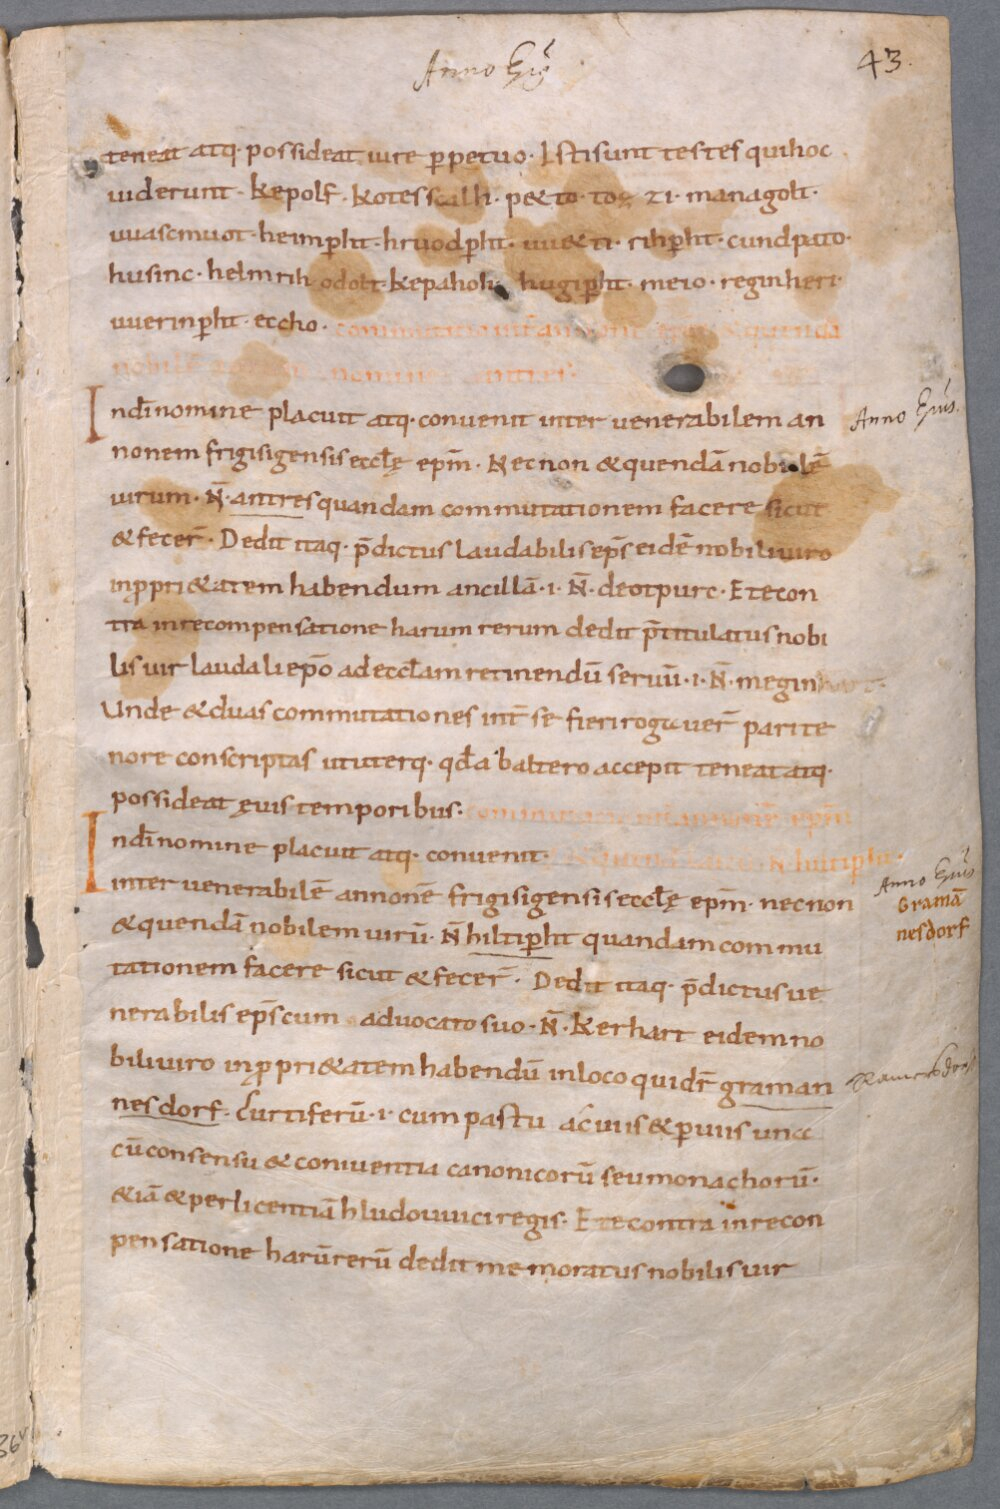 Anno Epõ
43.
teneat atq· possideat iure ꝑpetuo· Isti sunt testes qui hoc
uiderunt· kepolf· kotesscalh· p&to· tozi· managolt·
uuascmuot· heimꝑht· hruodꝑht· uu&ti· rihꝑht· cundpato·
husinc· helmrih odolt· kepaholt· hugiꝑht· meio· reginheri·
uuerinꝑht· eccho· commutatio int̄ annonē ep̄m &quendā
nobilē nomine antres·
In dī nomine placuit atq· convenit inter venerabilem an
Anno Epũs.
nonem frigisigensis eccł̄ę ep̄m· Nec non &quendā nobilē
uirum· N̄· antres quandam commutationem facere sicut
&fecer̄· Dedit itaq· p̄dictus laudabilis ep̄s eidē nobili uiro
in ꝓpri&atem habendum ancillā·i· N̄· deotpurc· Et econ
tra in recompensatione harum rerum dedit p̄titulatus nobi
lis uir laudali ep̄o ad eccł̄am retinendū seruū·i· N̄· meginhart·
Unde &duas commutationes int̄ se fieri rogauer̄ pari te
nore conscriptas ut uterq· qd̄ a b altero accepit teneat atq·
possideat ęuis temporibus· commutatio int̄ annonē ep̄m
In dī nomine placuit atq· convenit· &quendā N hiltiꝑht·
inter venerabilē annonē frigisigensis eccł̄ę ep̄m· nec non
Anno Epũs
Gramā
nesdorf
&quendā nobilem uirū· N̄ hiltiꝑht quandam commu
tationem facere sicut &fecer̄· Dedit itaq· p̄dictus ue
nerabilis ep̄s cum advocato suo· N̄· kerhart eidem no
bili uiro in ꝓpri&atem habendū in loco qui dr̄ graman
Ramersdorf
nesdorf· Curtiferū·i· cum pastu ac uiis &ꝑuiis una
cū consensu &coniventia canonicorū seu monachorū·
&iā &per licentiā hludouuici regis· Et econtra in recon
pensatione harū rerū dedit memoratus nobilis uir